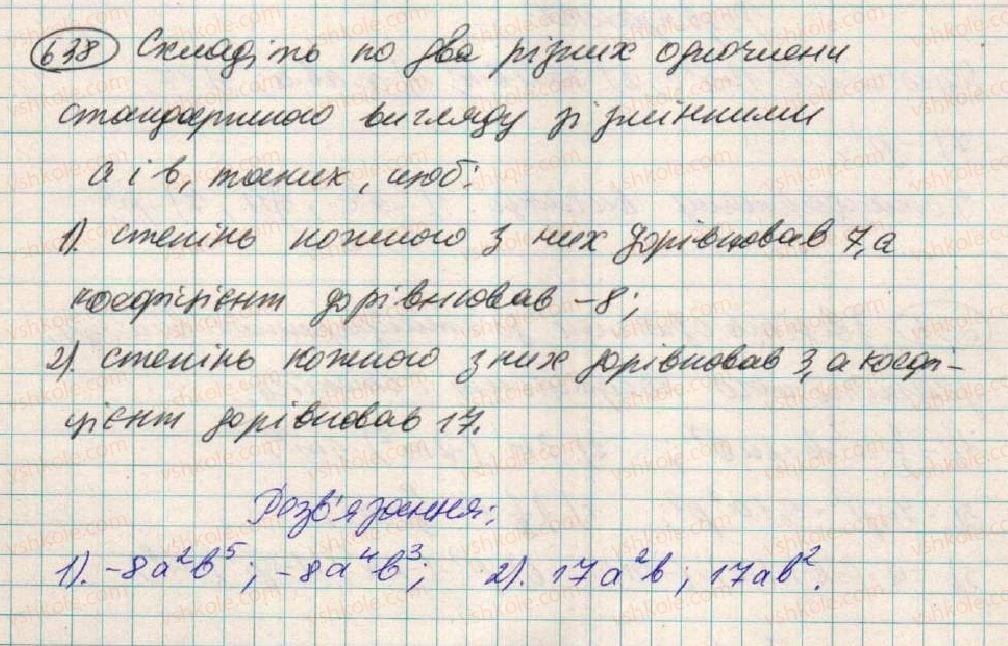 638 Складіть по два різних одночлени
стандартного вигляду зі змінними
a і b, таких, щоб:
1). степінь кожного з них дорівнював 7, а
коефіцієнт дорівнював -8;
2). степінь кожного з них дорівнював 3, а коефі-
цієнт дорівнював 17.
Розв'язання:
1). -8a²b⁵; -8a⁴b³; 2). 17a²b; 17ab².